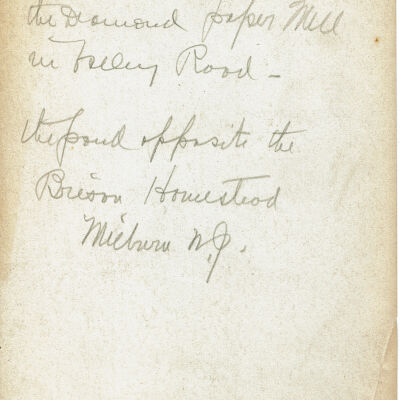 the Diamond paper Mill
in Road -
the pond opposite the
Homestead
Milburn N.J.